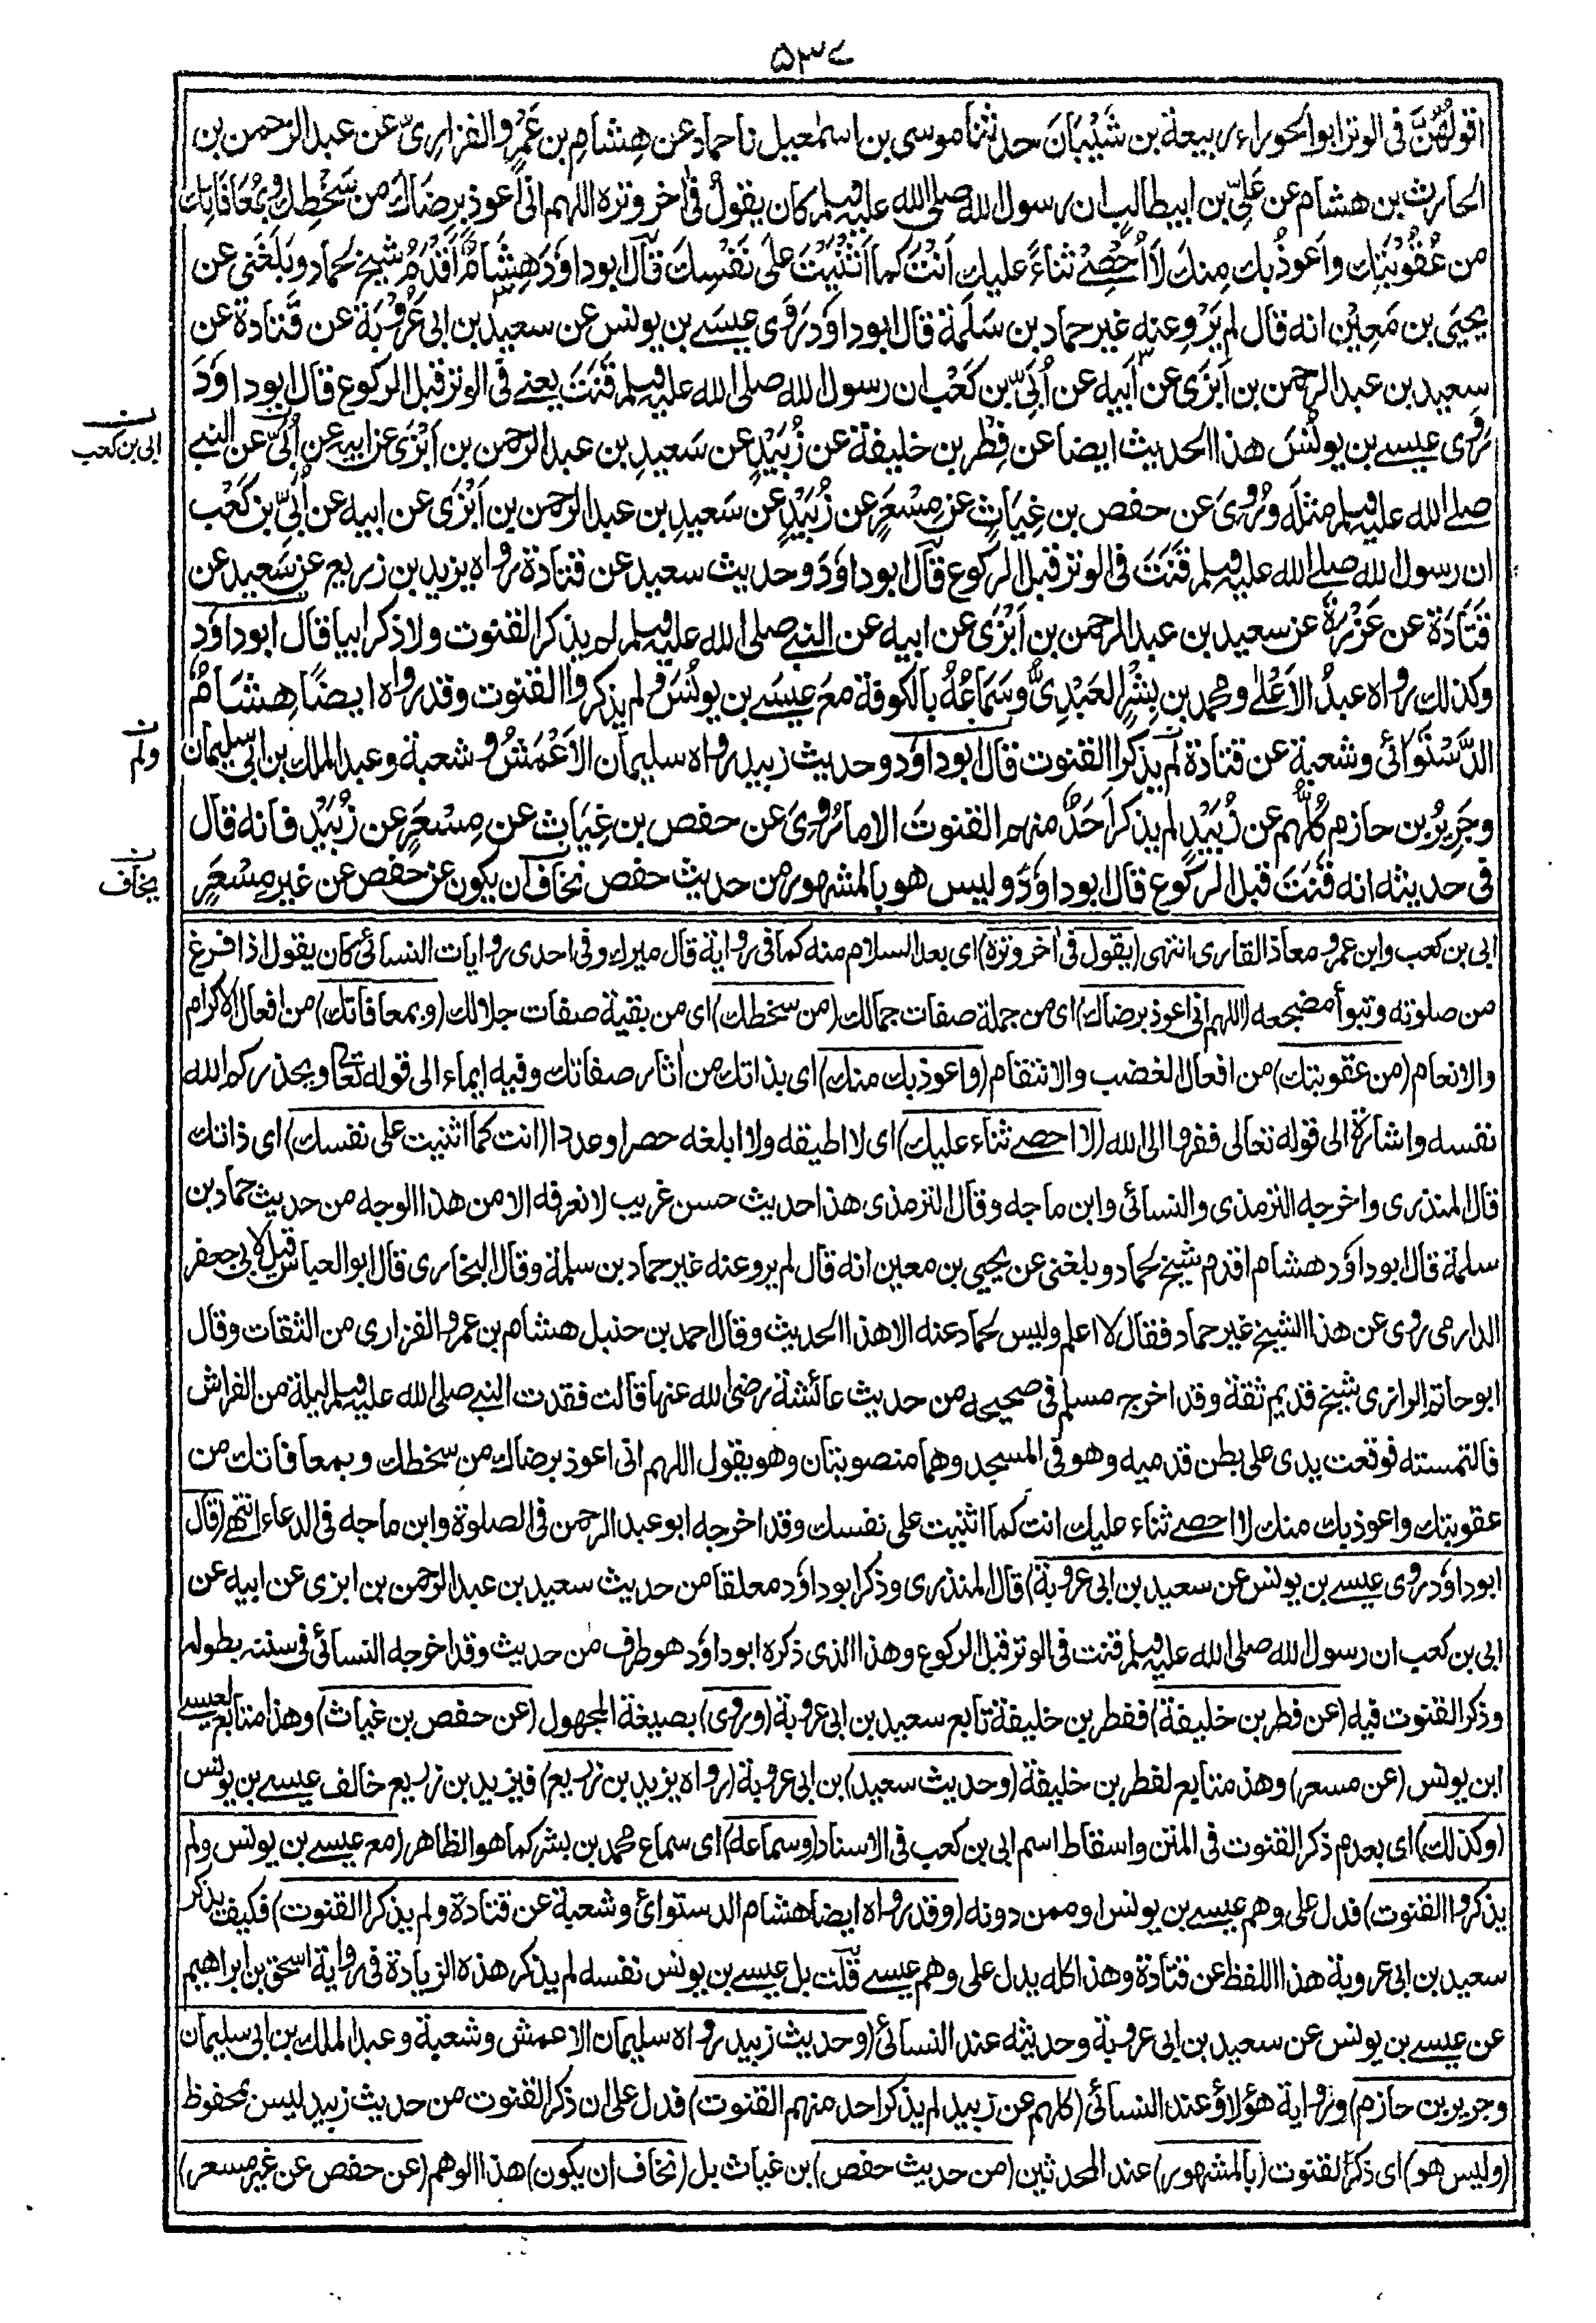 ۵۳۷
اقولُهُنَّ فى الوتر ابو الحوراء ربيعة بن شَيْبَانَ حدثنا موسى بن اسمٰعيل نا حماد عن هِشامِ بن عَمْرٍو الفزارِىّ عن عبد الرحمن بن
الحارث بن هشام عن عَلِىِّ بن ابيطالبٍ ان رسول الله صلى الله عليه وسلم كان يقولُ فى اٰخر وتره اللهم انى اعوذ بِرِضَاكَ من سَخْطِكَ وبِمُعَافَاتِكَ
من عُقُوْبَتِك واَعوذُ بك مِنكَ لَا اُحْصِىْ ثناءً عليك اَنْتَ كما اَثْنَيْتَ على نَفْسِكَ قال ابو داوَد هِشَامٌ اَقْدَمُ شيخٍ لحماد وبَلَغَنى عن
يحيَى بن مَعِيْن انه قال لم يَرْوِ عنه غير حماد بن سَلَمَةَ قال ابو داوَد رَوَى عيسى بن يونس عن سعيد بن ابى عَرُوْبَةَ عن قتادة عن
سعيد بن عبد الرحمن بن اَبزَى عن اَبيه عن اُبَىِّ بن كَعْب ان رسول الله صلى الله عليه وسلم قَنَتَ يعنى فى الوتر قبل الركوع قال ابو داوَدَ
رَوَى عيسى بن يونُسَ هذا الحديث ايضا عن فِطْرِ بن خليفة عن زُبَيْدٍ عن سَعيدِ بن عبد الرحمن بن اَبْزَى عن ابيه عن اُبَىٍّ عن النبى
ابى بن كعب
صلى الله عليه وسلم مثلَه ورُوِىَ عن حفص بن غِيَاثٍ عن مِسْعَرٍ عن زُبَيْدٍ عن سَعيدِ بن عبد الرحمن بن اَبْزَى عن ابيه عن اُبَىِّ بن كَعْب
ان رسول الله صلى الله عليه وسلم قَنَتَ فى الوتر قبل الركوع قال ابو داوَدَ وحديث سعيد عن قتادة رواه يزيد بن زريع عن سَعيد عن
قَتَادَةَ عن عَزْرَةَ عن سعيد بن عبد الرحمن بن اَبْزَى عن ابيه عن النبى صلى الله عليه وسلم لم يذكر القنوت ولا ذكر ابيا قال ابو داوَد
وكذلك رواه عبدُ الاَعْلٰى ومحمد بن بِشْرِ العَبْدِىُّ وسَمَاعُهُ بالكوفة مَعَ عيسَى بن يونُسَ ولم يذكروا القنوت وقد رواه ايضًا هِشَامٌ
الدَّسْتَوَائى وشعبةُ عن قتادة لم يذكرا القنوت قال ابو داوَد وحديث زبيد رواه سليمان الاَعْمَشُ و شعبة وعبد الملك بن ابى سليمان
ولم
وجَرِيْرُ بن حازم كُلُّهم عن زُبَيْدٍ لم يذكر اَحَدٌ منهم القنوتَ الا ما رُوِىَ عن حفص بن غِيَاثٍ عن مِسْعَرٍ عن زُبَيْد فانه قال
فى حديثه انه قَنَتَ قبل الركوع قال ابو داوَد وليس هو بالمشهور من حديث حفص نخاف ان يكون عن حفص عن غير مِسْعَرٍ
يخاف
ابى بن كعب وابن عمر و معاذ القارى انتهى (يقول فى اٰخر وتره) اى بعد السلام منه كما فى رواية قال ميرك وفى احدى روايات النسائى كان يقول اذا فرغ
من صلوته وتبوأ مضجعه (اللهم انى اعوذ برضاك) اى من جملة صفات جمالك (من سخطك) اى من بقية صفات جلالك (وبمعافاتك) من افعال الاكرام
والانعام (من عقوبتك) من افعال الغضب والانتقام (واعوذ بك منك) اى بذاتك من اٰثار صفاتك وفيه ايماء الى قوله تعالى ويحذركم الله
نفسه واشارة الى قوله تعالى ففروا الى الله (لا احصى ثناء عليك) اى لا اطيقه ولا ابلغه حصرا وعددا (انت كما اثنيت على نفسك) اى ذاتك
قال المنذرى واخرجه الترمذى والنسائى وابن ماجه وقال الترمذى هذا حديث حسن غريب لا نعرفه الا من هذا الوجه من حديث حماد بن
سلمة قال ابو داوَد هشام اقدم شيخ لحماد وبلغنى عن يحيى بن معين انه قال لم يرو عنه غير حماد بن سلمة وقال البخارى قال ابو العباس قيل لابى جعفر
الدارمى روى عن هذا الشيخ غير حماد فقال لا اعلم وليس لحماد عنه الا هذا الحديث وقال احمد بن حنبل هشام بن عمرو الفزارى من الثقات وقال
ابو حاتم الرازى شيخ قديم ثقة وقد اخرج مسلم فى صحيحه من حديث عائشة رضى الله عنها قالت فقدت النبى صلى الله عليه وسلم ليلة من الفراش
فالتمسته فوقعت يدى على بطن قدميه وهو فى المسجد وهما منصوبتان وهو يقول اللهم انى اعوذ برضاك من سخطك وبمعافاتك من
عقوبتك واعوذ بك منك لا احصى ثناء عليك انت كما اثنيت على نفسك وقد اخرجه ابو عبد الرحمن فى الصلوة وابن ماجه فى الدعاء انتهى (قال
ابو داوَد روى عيسى بن يونس عن سعيد بن ابى عروبة) قال المنذرى وذكر ابو داوَد معلقا من حديث سعيد بن عبد الرحمن بن ابزى عن ابيه عن
ابى بن كعب ان رسول الله صلى الله عليه وسلم قنت فى الوتر قبل الركوع وهذا الذى ذكره ابو داوَد هو طرف من حديث وقد اخرجه النسائى فى سننه بطوله
وذكر القنوت فيه (عن فطر بن خليفة) ففطر بن خليفة تابع سعيد بن ابى عروبة (وروى) بصيغة المجهول (عن حفص بن غياث) وهذا متابع لعيسى
ابن يونس (عن مسعر) وهذ متابع لفطر بن خليفة (وحديث سعيد) بن ابى عروبة (رواه يزيد بن زريع) فيزيد بن زريع خالف عيسى بن يونس
(وكذلك) اى بعدم ذكر القنوت فى المتن واسقاط اسم ابى بن كعب فى الاسناد (وسماعه) اى سماع محمد بن بشر كما هو الظاهر (مع عيسى بن يونس ولم
يذكروا القنوت) فدل على وهم عيسى بن يونس او ممن دونه (وقد رواه ايضا هشام الدستوائى وشعبة عن قتادة ولم يذكرا القنوت) فكيف يذكر
سعيد بن ابى عروبة هذا اللفظ عن قتادة وهذا كله يدل على وهم عيسى قلت بل عيسى بن يونس نفسه لم يذكر هذه الزيادة فى رواية اسحق بن ابراهيم
عن عيسى بن يونس عن سعيد بن ابى عروبة وحديثه عند النسائى (وحديث زبيد رواه سليمان الاعمش وشعبة وعبد الملك بن ابى سليمان
وجرير بن حازم) ورواية هؤلاؤ عند النسائى (كلهم عن زبيد لم يذكر احد منهم القنوت) فدل على ان ذكر القنوت من حديث زبيد ليس بمحفوظ
(وليس هو) اى ذكر القنوت (بالمشهور) عند المحدثين (من حديث حفص) بن غياث بل (نخاف ان يكون) هذا الوهم (عن حفص عن غير مسعر)